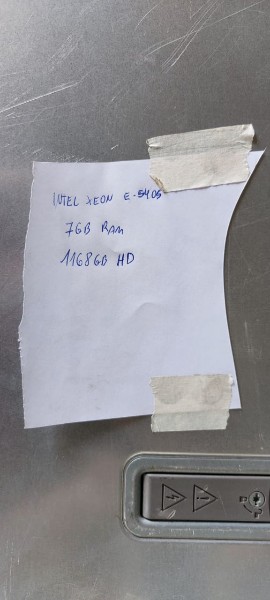 INTEL XEON E-5405
7GB RAM
1168GB HD